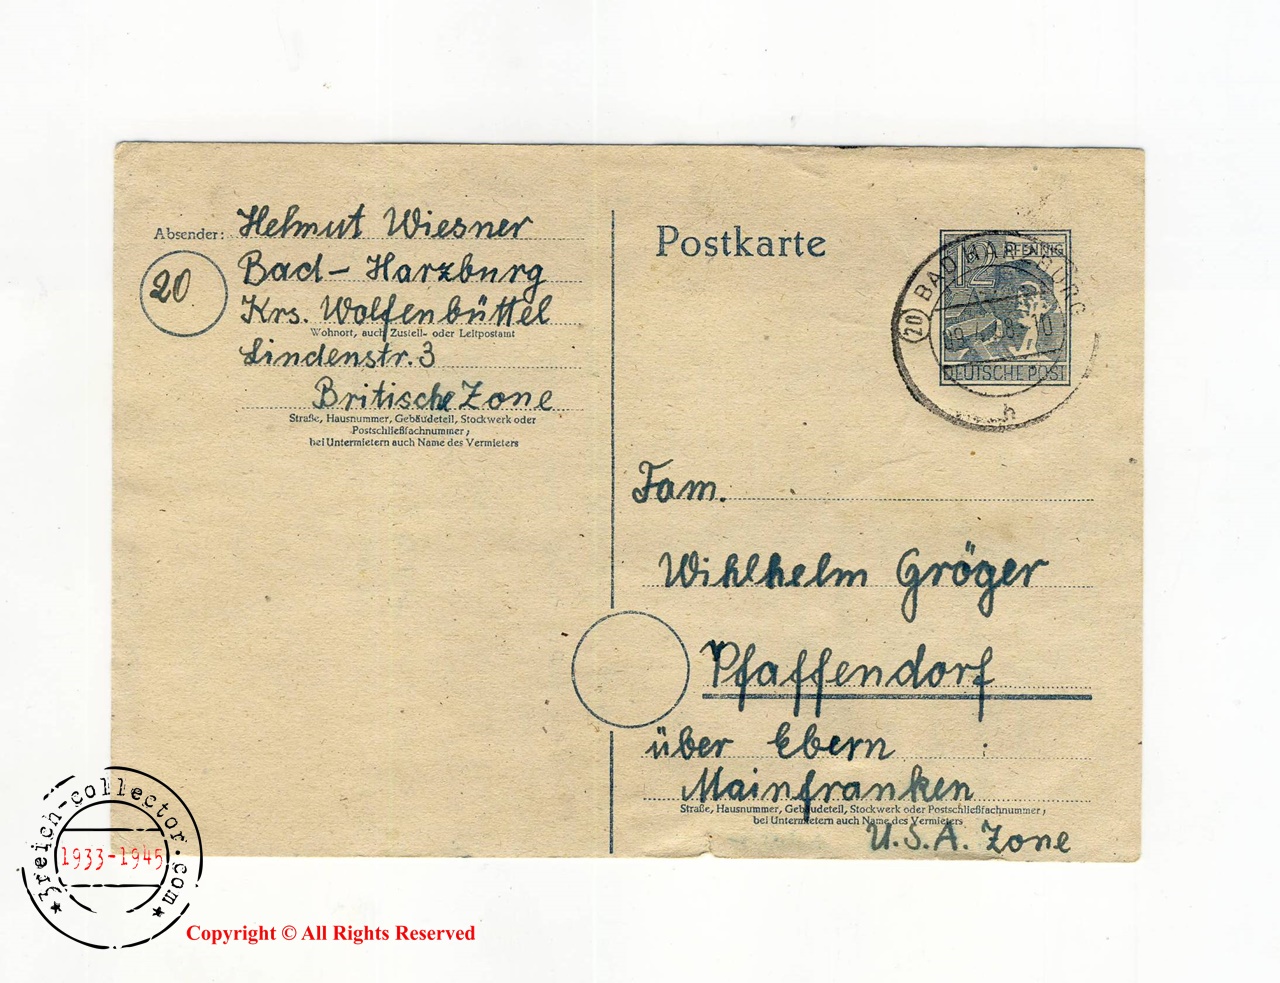 Absender: Helmut Wiesner
20
Bad-Harzburg
Krs. Wolfenbüttel
Wohnort, auch Zustell- oder Leitpostamt
Lindenstr. 3
Britische Zone
Straße, Hausnummer, Gebäudeteil, Stockwerk oder
Postschließfachnummer;
bei Untermietern auch Name des Vermieters
Postkarte
12 PFENNIG
DEUTSCHE POST
(20) BAD HARZBURG
h
Fam.
Wihlhelm Gröger
Pfaffendorf
über Ebern
Mainfranken
Straße, Hausnummer, Gebäudeteil, Stockwerk oder Postschließfachnummer;
bei Untermietern auch Name des Vermieters
U.S.A. Zone
3reich-collector.com
1933-1945
Copyright © All Rights Reserved